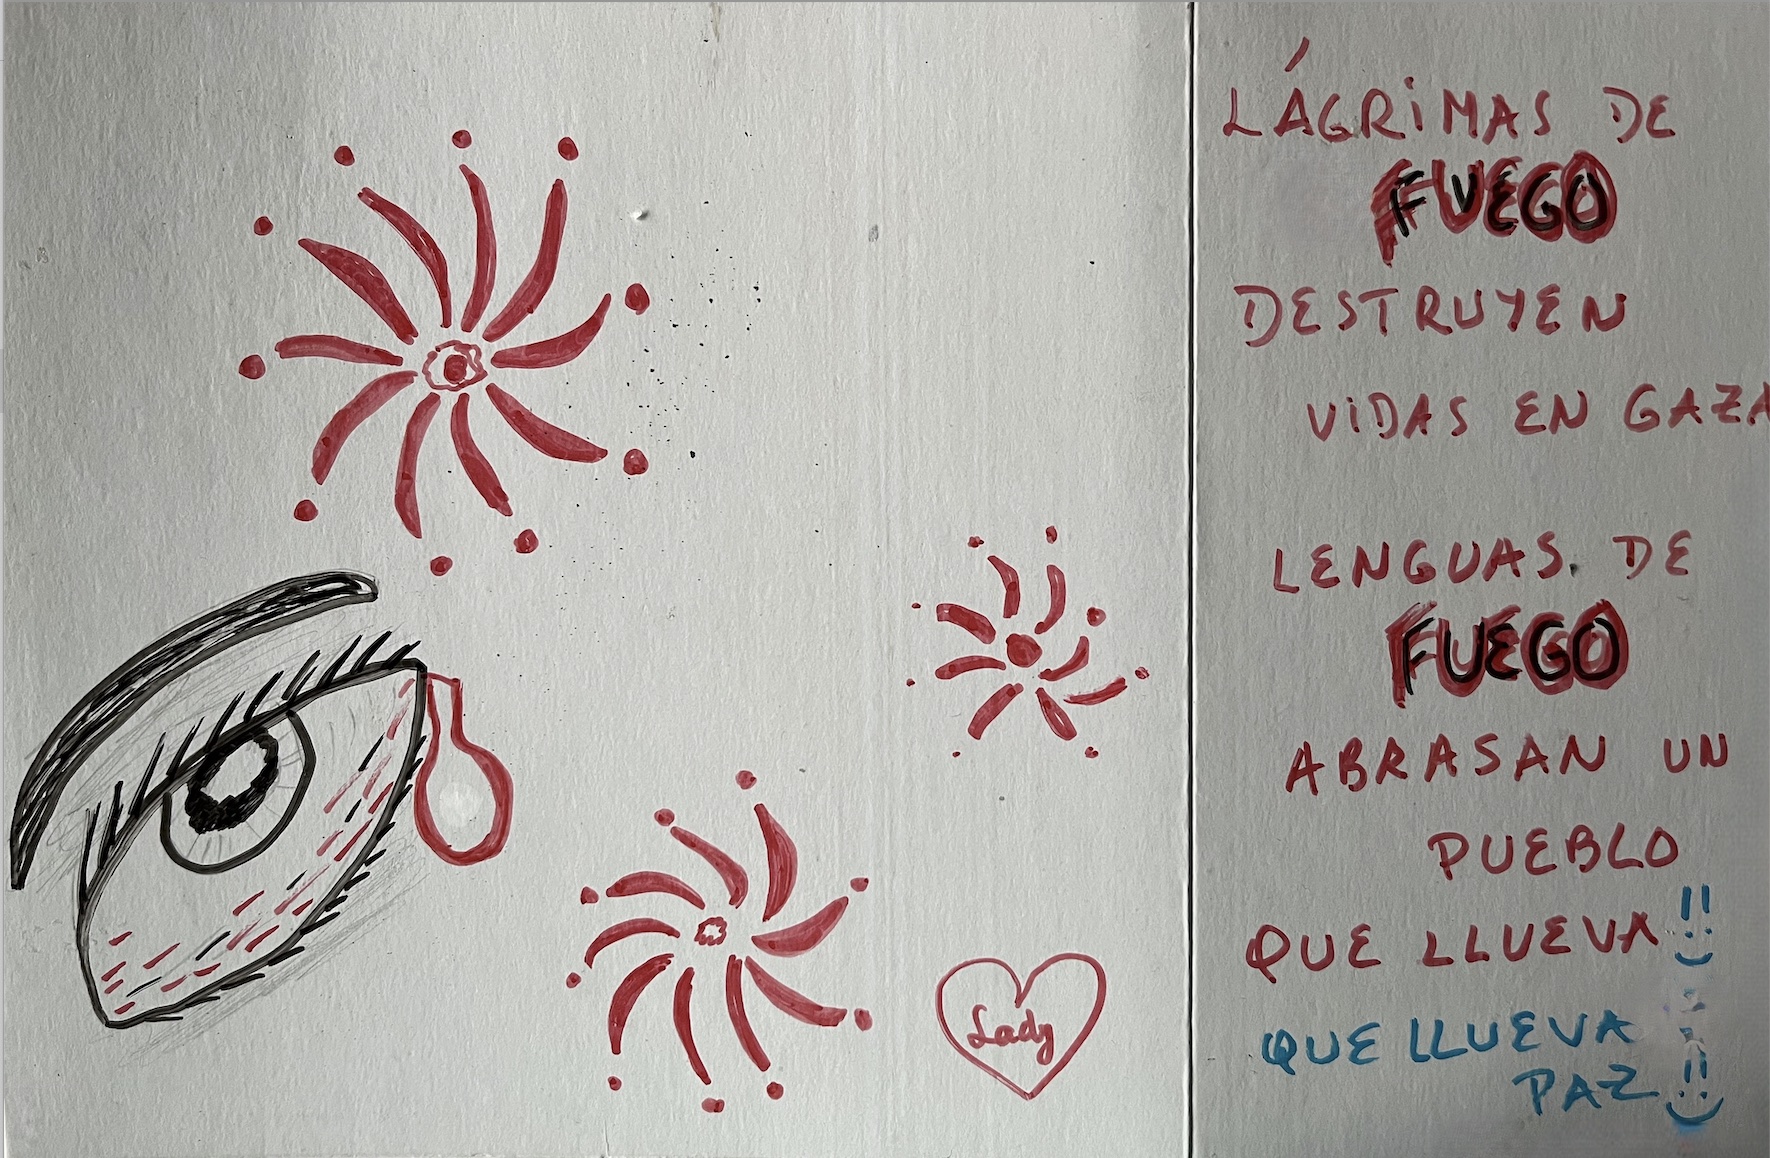 Lady
LÁGRiMAS DE
FUEGO
DESTRUYEN
ViDAS EN GAZA
LENGUAS DE
FUEGO
ABRASAN UN
PUEBLO
QUE LLUEVA!!
QUE LLUEVA
PAZ!!